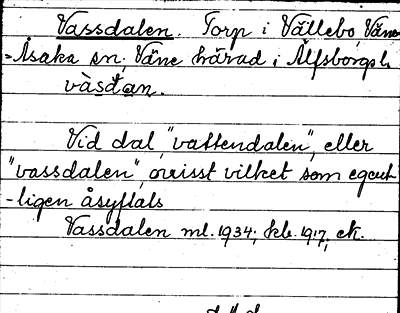 Vassdalen. Torp i Vällebo, Väne
-Åsaka sn, Väne härad i Älfsborgs l.
vàsđan.
Vid dal, "vattendalen", eller
"vassdalen", ovisst vilket som egent
-ligen åsyftals
Vassdalen ml. 1934; kb. 1917; ek.